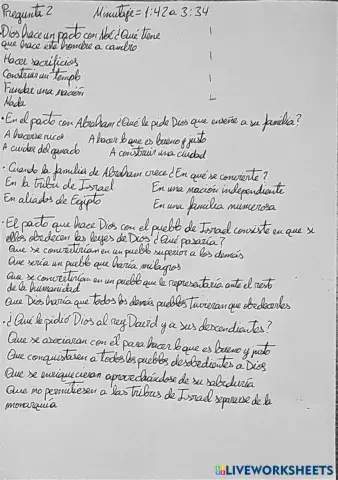 Pregunta 2 Minutaje = 1:42 a 3:34
Dios hace un pacto con Noé ¿Qué tiene
que hace este hombre a cambio
Hacer sacrificios
Construir un templo
Fundar una nación
Nada
• En el pacto con Abraham ¿Qué le pide Dios que enseñe a su familia?
A hacerse ricos A hacer lo que es bueno y justo
A cuidar del ganado A construir una ciudad
• Cuando la familia de Abraham crece ¿En qué se convierte?
En la tribu de Israel En una nación independiente
En aliados de Egipto En una familia numerosa
• El pacto que hace Dios con el pueblo de Israel consiste en que si
ellos obedecen las leyes de Dios ¿Qué pasaría?
Que se convertirían en un pueblo superior a los demás
Que sería un pueblo que haría milagros
Que se convertirían en un pueblo que le representaría ante el resto
de la humanidad
Que Dios haría que todos los demás pueblos tuvieran que obedecerles
• ¿Qué le pidió Dios al rey David y a sus descendientes?
Que se asociaran con él para hacer lo que es bueno y justo
Que conquistasen a todos los pueblos desobedientes a Dios
Que se enriquecieran aprovechándose de su sabiduría
Que no permitiesen a las tribus de Israel separarse de la
monarquía
LIVEWORKSHEETS